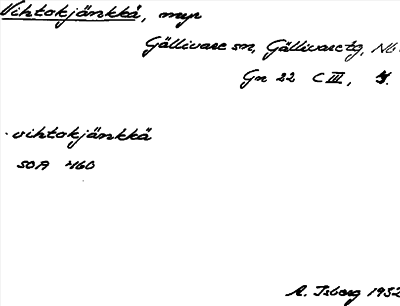 Vihtokjänkkä, myr
Gällivare sn, Gällivare tg, Nb.
Gn 22 C III,
vihtokjänkkä
SOA 460
A. Isberg 1932